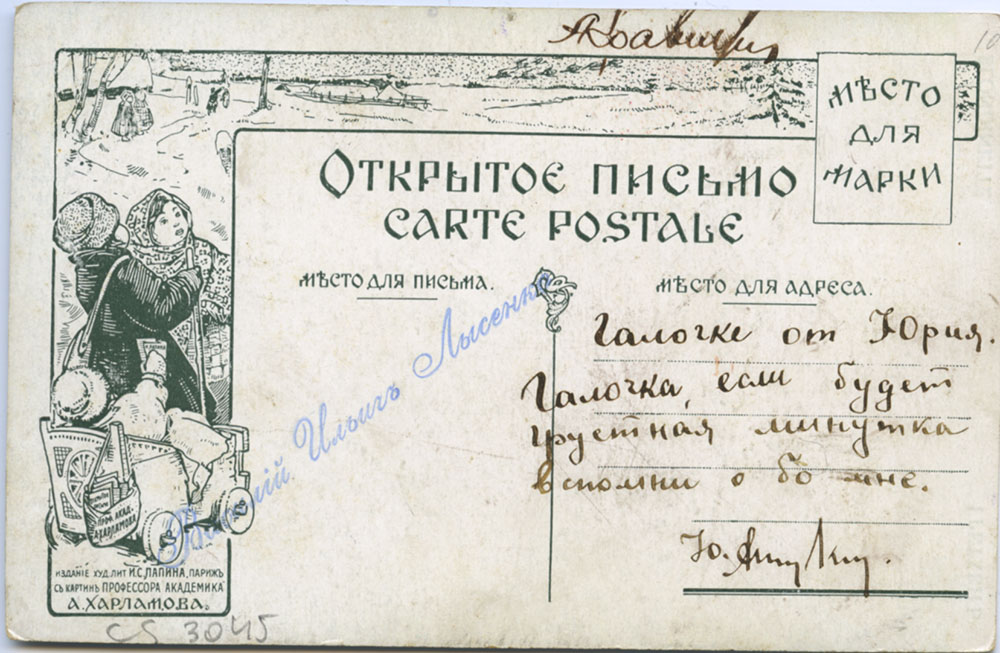 МѢСТО
ДЛЯ
МАРКИ
ОТКРЫТОЕ ПИСЬМО
CARTE POSTALE
МѢСТО ДЛЯ ПИСЬМА.
МѢСТО ДЛЯ АДРЕСА.
Галочке от Юрия.
Галочка, если будет
грустная минутка
вспомни о бо мне.
Ильичъ Лысенко
ПРОФ. АКАД.
А.ХАРЛАМОВА
ИЗДАНІЕ ХУД. ЛИТ И.С. ЛАПИНА, ПАРИЖЪ
СЪ КАРТИНЪ ПРОФЕССОРА АКАДЕМИКА
А. ХАРЛАМОВА.
CS 3045